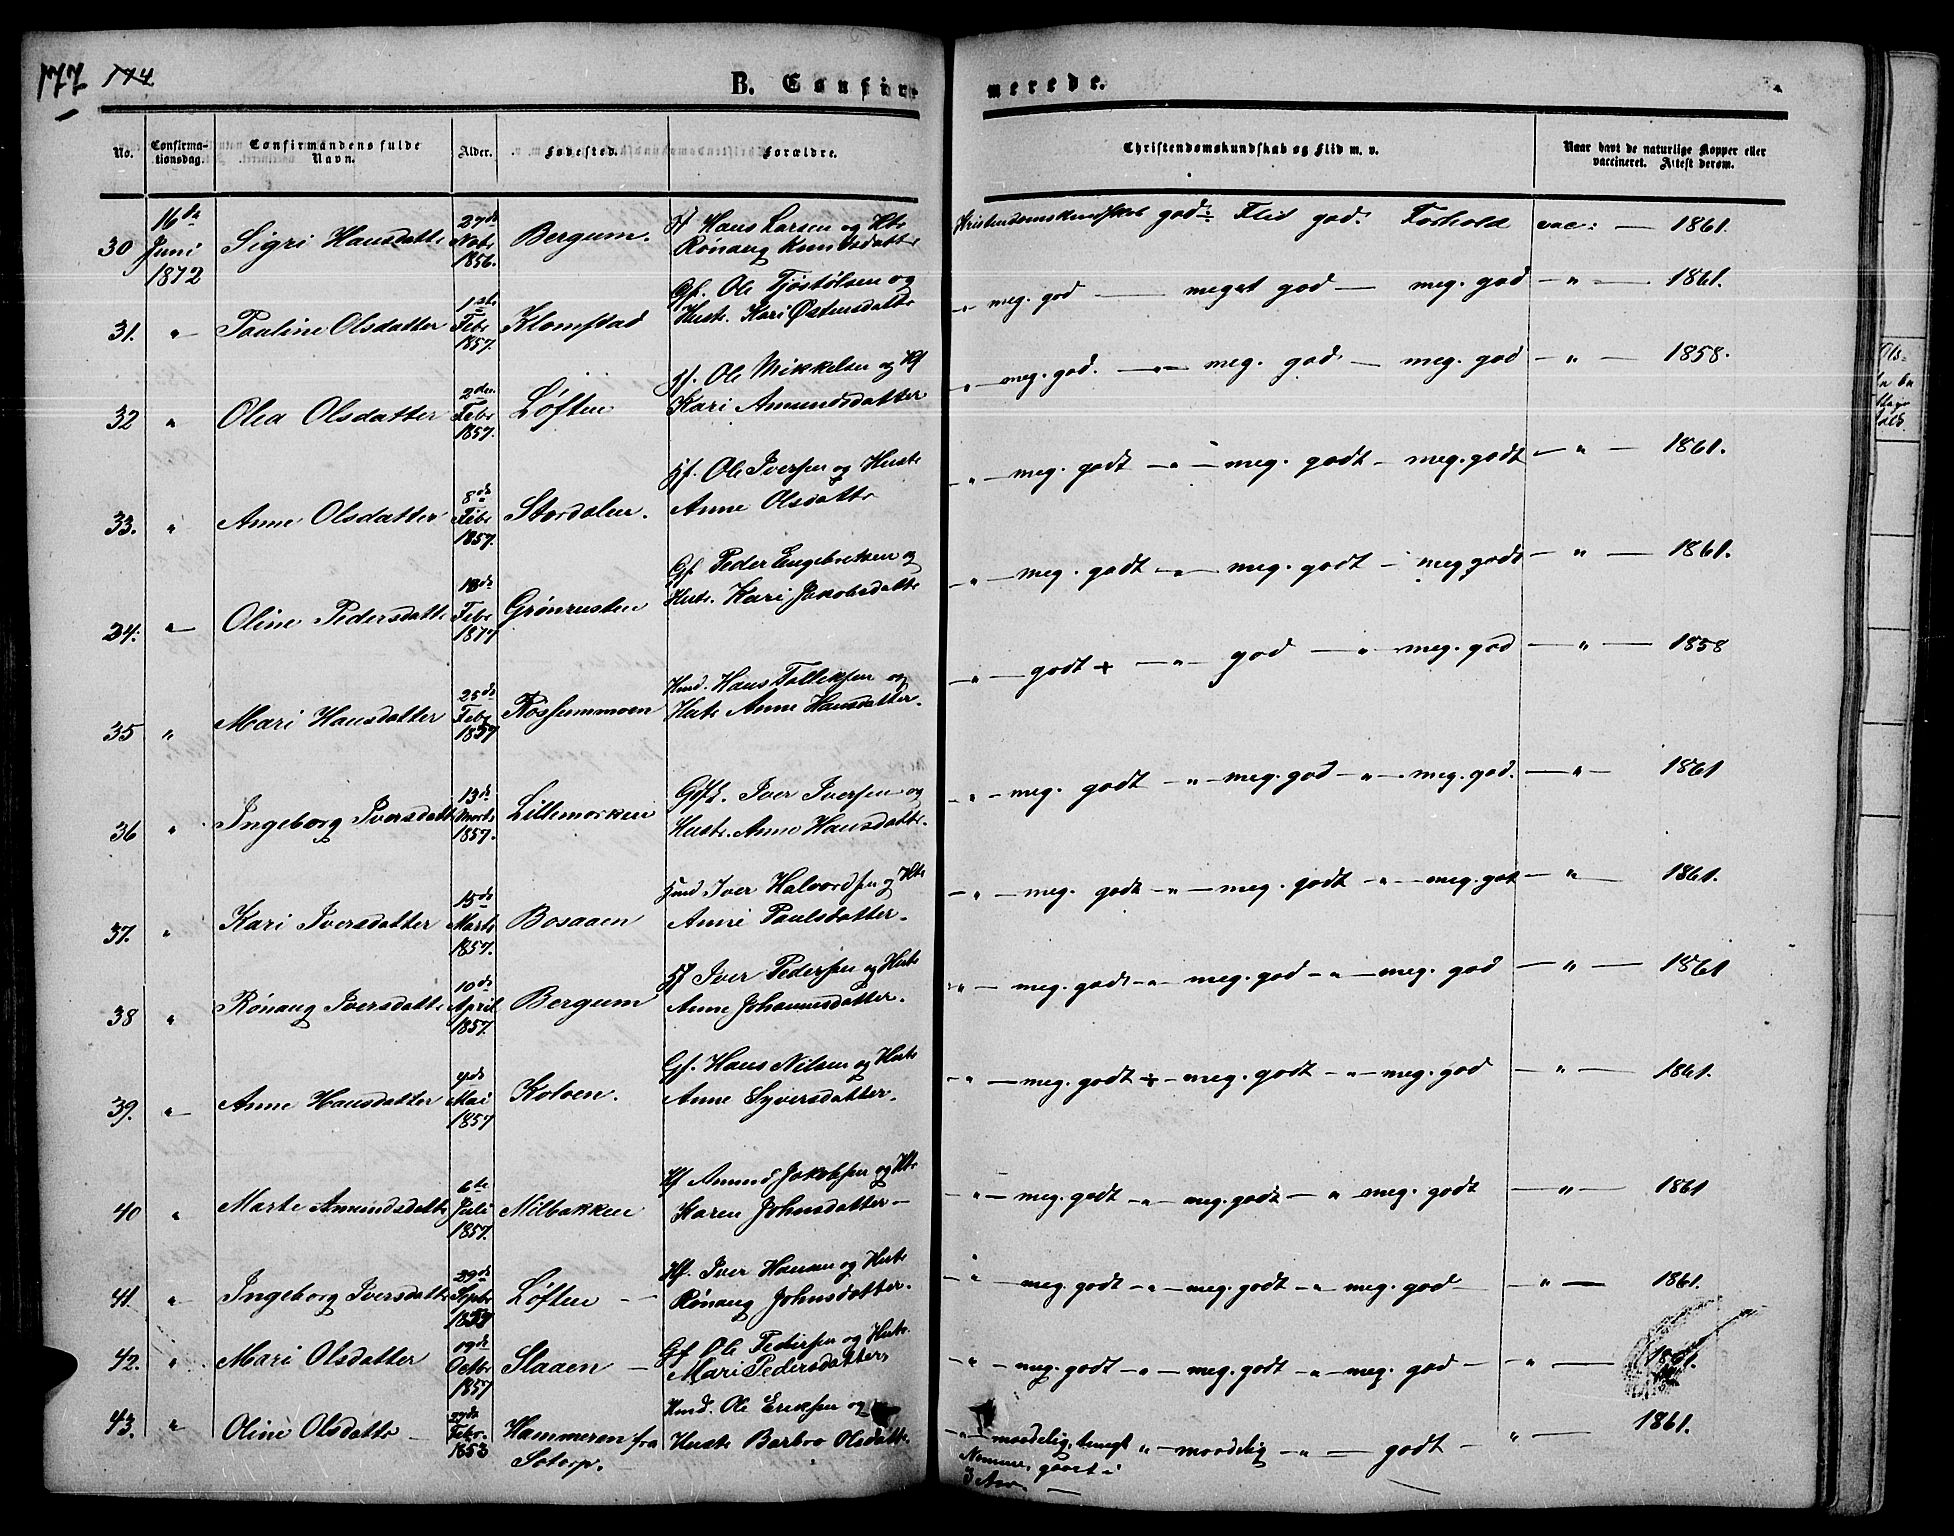 177 174
B. Confirmerede.
No. Confirmationsdag. Confirmandens fulde Navn. Alder. Fødested. Forældre. Christendomskundskab og Flid m. v. Naar havt de naturlige Kopper eller vaccineret. Attest derom.
30 16de Juni 1872 Sigri Hansdatter 27de 1856. Bergum. Hans Larsen og Rønaug Knudsdatter Kristendomskundskab god Flid god. Forhold vac: — 1861.
31. " Pauline Olsdatter 1ste Febr 1857. Klomstad Gf. Ole Tjøstølsen og Hustr. Kari Østensdatter " meg. god — meget god — meg. god — " — 1861.
32 " Olea Olsdatter 2den Febr 1857. Løften Ole Mikkelsen og Kari Amundsdatter " — meg. god. — " — meg. god — meg. god — " — 1858.
33. " Anne Olsdatter 8de Febr 1857. Stordalen. Ole Iversen og Hustr Anne Olsdatter " — meg. godt — " — meg. godt — meg. godt — " — 1861.
34. " Oline Pedersdatter Febr 1877 Grønrusten Gf. Peder Engebretsen og Hustr. Kari Jakobsdatter " — meg. godt — " — meg. godt — meg godt — " — 1861.
35 " Mari Hansdatter 25de Febr 1857 Rossummoen Hmd. Hans Tolleifsen og Hustr Anne Hansdatter. " — godt + — " — god — " — meg. god — " — 1858
36 " Ingeborg Iversdatter 13de Marts 1857. Lillemorken Iver Iversen og Hustr. Anne Hansdatter. " — meg. godt — " — meg. god — " — meg. god. — " — 1861
37. " Kari Iversdatter 15de Marts 1857. Bosaaen Hmd Iver Halvordsen og Anne Paulsdatter. " — meg. godt — " — meg. godt — " — meg. got — " — 1861.
38 " Rønaug Iversdatter 10de April 1857. Bergum Iver Pedersen og Hustr Anne Johannesdatter. " — meg. godt — " — meg. god — " — meg. god — " — 1861
39. " Anne Hansdatter 4de Mai 1857 Kolven. Gf. Hans Nilsen og Hustr Anne Syversdatter. " — meg. godt + — meg. godt — " — meg. god — " — 1861.
40 " Marte Amundsdatter 6te Juli 1857. Milbakken Amund Jakobsen og Karen Johnsdatter — " — meg. godt — " — meg. godt — " — meg. godt — " — 1861
41. " Ingeborg Iversdatter 29de Septbr Løften — Iver Hansen og Hustr Rønaug Johnsdatter. " — meg. godt — " — meg. godt — " — meg. god — " — 1861.
42. " Mari Olsdatter Octbr 1857 Slaaen — Gf. Ole Pedersen og Hustr Mari Pedersdatter " — meg. godt — " — meg. godt — " — meg. god — " — 1861.
43. " Oline Olsdatter — 27de Febr. 1853 Hammeren fra Sotorp. Hmd. Ole Eriksen og Hustr Barbro Olsdatter " — maadelig, " — maadelig — " — godt — " — 1861.